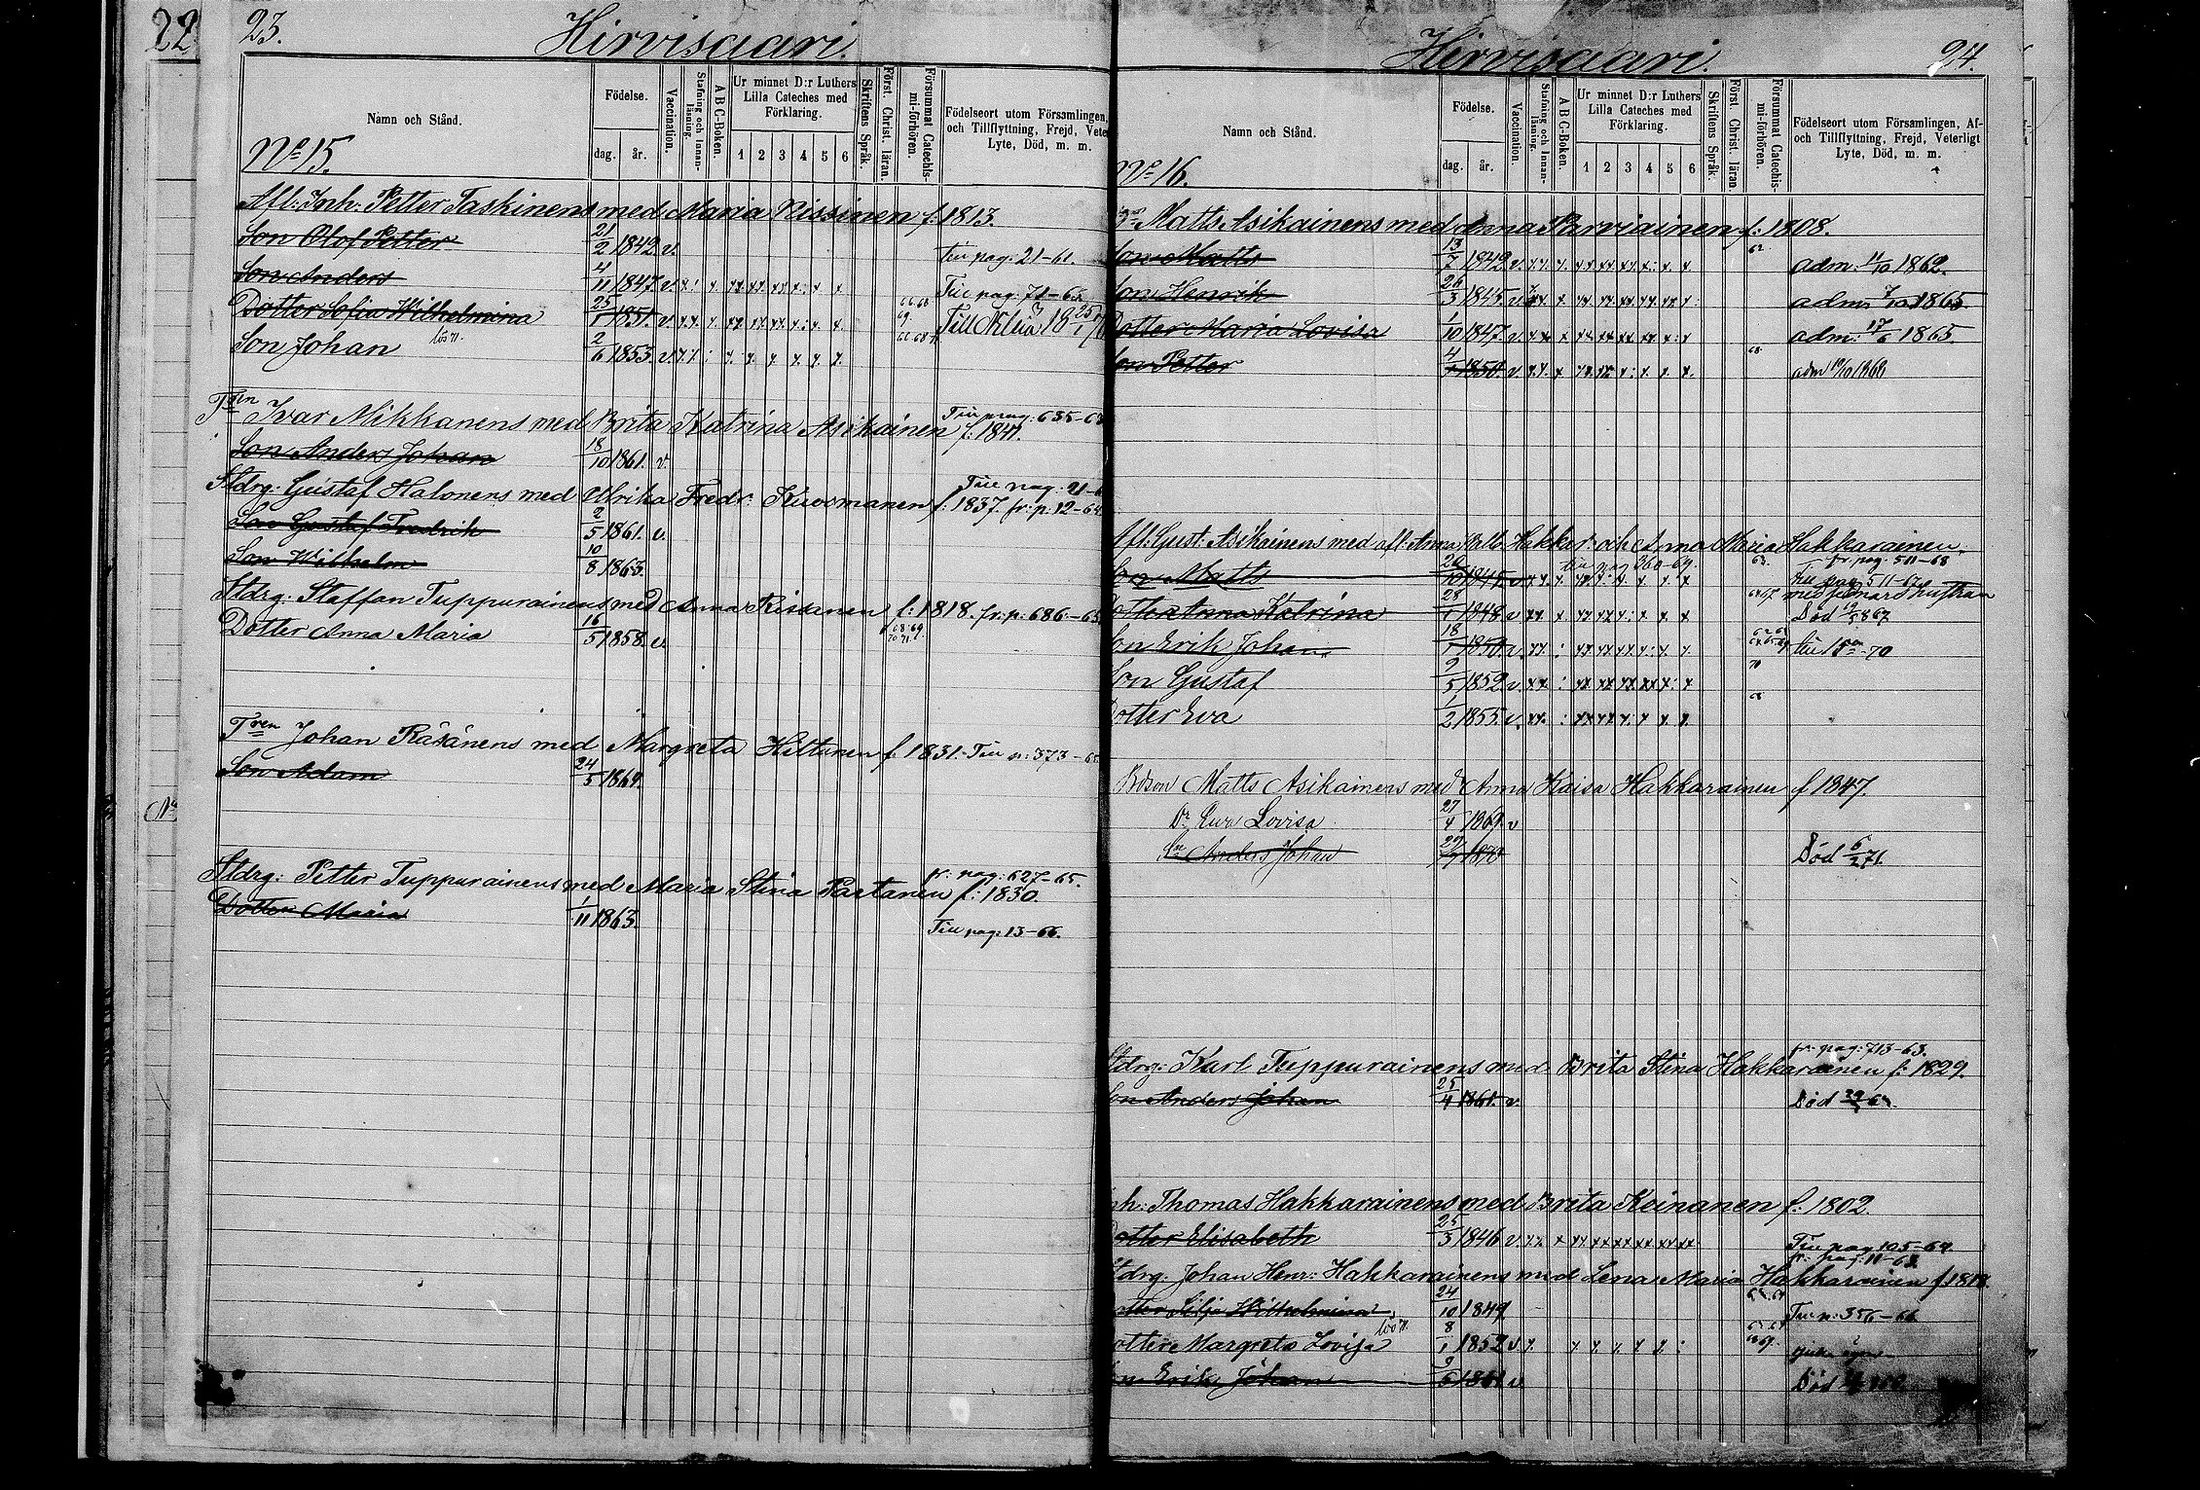 22
23.
Hirvisaari.
Namn och Stånd.
No 15.
Födelse.
dag.
år.
Vaccination.
Stafning och Innan-läsning.
A B C-Boken.
Ur minnet D:r Luthers
Lilla Cateches med
Förklaring.
1 2 3 4 5 6
Skriftens Språk.
Först. Christ. läran.
Försummat Catechis-
mi-förhören.
Födelseort utom Församlingen,
och Tillflyttning, Frejd, Vete
Lyte, Död, m. m.
Afl: Inh: Petter Taskinens med Maria Nissinen f: 1813.
Son Olof Petter 21/2 1842. v. Till pag: 21-61
Son Anders 4/11 1847. v. Till pag: 71-65
Dotter Sofia Wilhelmina 25/1 1851. v. 66.68 69.
Son Johan 2/6 1853. v.
Tren Ivar Mikkanens med Brita Katrina Asikainen f: 1841. Till pag: 635-
Son Anders Johan 18/10 1861. v.
Stdrg: Gustaf Halonens med Ulrika Fredr: Kuosmanen f: 1837. fr: p: 12-64. Till pag: 21-
Son Gustaf Fredrik 2/5 1861. v.
Son Wilhelm 10/8 1863.
Stdrg: Staffan Tuppurainens med Anna Rissanen f: 1818. fr: p: 686-65
Dotter Anna Maria 16/5 1858. v. 68.69. 70 71.
Tren Johan Räsänens med Margreta Hiltunen f 1831. Till p: 373-65
Son Adam 24/5 1864.
Stdrg: Petter Tuppurainens med Maria Stina Partanen f: 1830. fr: pag: 627-65.
Dotter Maria 1/11 1863. Till pag: 13-66.
Hirvisaari.
24.
Namn och Stånd.
No 16.
Födelse.
dag.
år.
Vaccination.
Stafning och Innan-läsning.
A B C-Boken.
Ur minnet D:r Luthers
Lilla Cateches med
Förklaring.
1 2 3 4 5 6
Skriftens Språk.
Först. Christ. läran
Försummat Catechis-
mi-förhören.
Födelseort utom Församlingen, Af-
och Tillflyttning, Frejd, Veterligt
Lyte, Död, m. m.
Matts Asikainens med Anna Parviainen f: 1808.
Son Matts 13/7 1842. v. 62 adm: 11/10 1862.
Son Henrik 26/3 1845. v. adm: 1865
Dotter Maria Lovisa 1/10 1847. v. adm: 17/6 1865.
Son Petter 1850. v. 68. adm 10/10 1868
Afl: Gust: Asikainens med afl: Anna Hakkar: och Anna Maria Hakkarainen.
Son Matts 1845. v. till pag 260-69. 63. fr. pag. 511-68
till pag: 511-67 med hustrun
Dotter Anna Katrina 28/1 1848. v. Död 67
Son Erik Johan 18/1 1850. v. till 150-70
Son Gustaf 9/5 1852. v. 70
Dotter Eva 1/2 1855. v.
Bdson Matts Asikainens med Anna Kaisa Hakkarainen f 1847.
Dr Eva Lovisa 27/4 1869. v
Sn Anders Johan 1870 Död 6/2 71.
Stdrg: Karl Tuppurainens med Brita Stina Hakkarainen f: 1829. fr: pag: 713-63.
Son Anders Johan 25/4 1861. v. Död
Inh: Thomas Hakkarainens med Brita Keinanen f: 1802.
Dotter Elisabeth 25/3 1846 v. Till pag 105-64.
Stdrg. Johan Henr: Hakkarainens med Lena Maria Hakkarainen
Dotter Silja Wilhelmina 24/10 1849. Till p: 356-66
Dotter Margreta Lovisa 8/1 1852 v
Son Erik Johan v Död